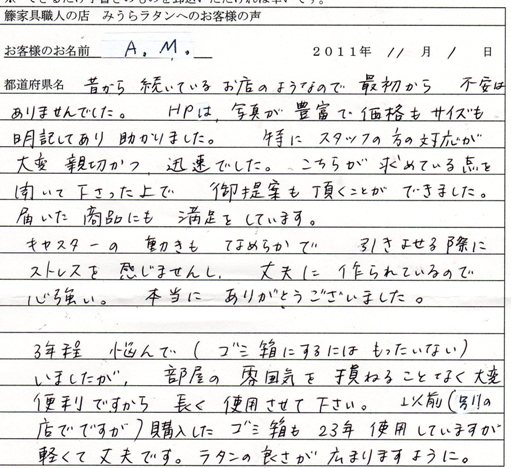 籐家具職人の店 みうらラタンへのお客様の声
お客様のお名前 A. M. 2011年 11月 1日
都道府県名 昔から 続いているお店のようなので 最初から 不安は
ありませんでした。 HPは、写真が 豊富で 価格も サイズも
明記してあり 助かりました。 特に スタッフの方の対応が
大変 親切かつ 迅速でした。 こちらが 求めている点を
聞いて下さった上で 御提案も 頂くことが できました。
届いた 商品にも 満足をしています。
キャスターの 動きも なめらかで 引きよせる際に
ストレスを 感じませんし、 丈夫に 作られているので
心強い。 本当に ありがとうございました。
3年程 悩んで ( ゴミ箱にするには もったいない )
いましたが、 部屋の 雰囲気を 損ねることなく 大変
便利ですから 長く 使用させて下さい。 以前 (別の
店でですが) 購入した ゴミ箱も 23年 使用していますが
軽くて 丈夫です。 ラタンの良さが 広まりますように。